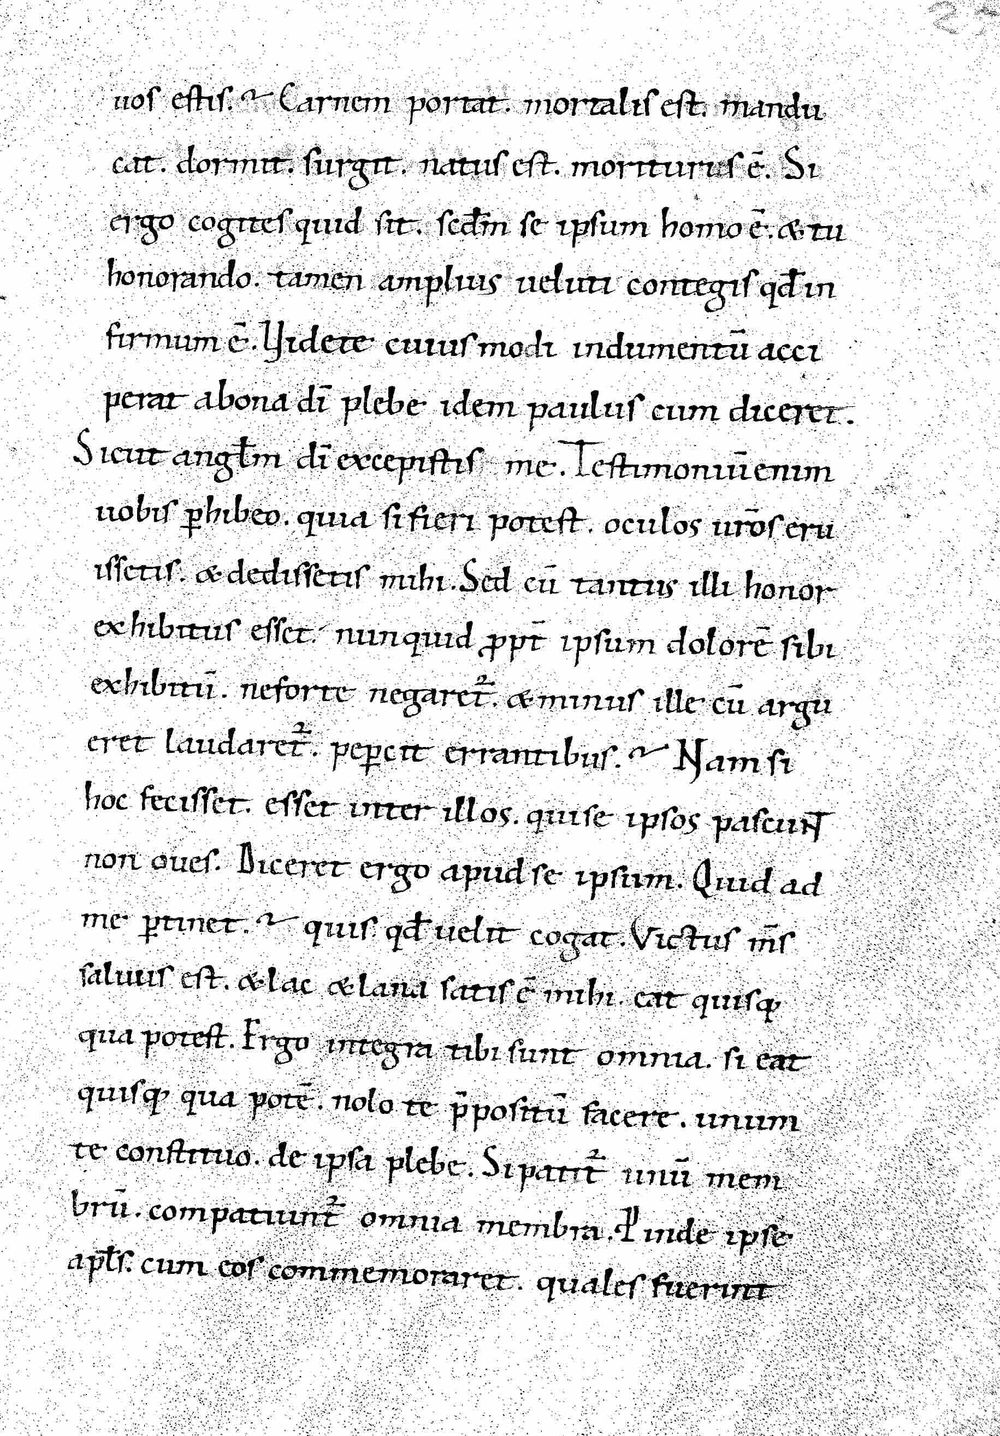 27
uos estis. Carnem portat. mortalis est. mandu
cat. dormit. surgit. natus est. moriturus ē. Si
ergo cogites quid sit. scdm̄ se ipsum homo ē. & tu
honorando. tamen amplius ueluti contegis qđ in
firmum ē. Videte cuius modi indumentū acci
perat abona dī plebe idem paulus cum diceret.
Sicut angłm dī excepistis me. Testimoniū enim
uobis ꝑhibeo. quia si fieri potest. oculos ur̄os eru
issetis. & dedissetis mihi. Sed cū tantus illi honor
exhibitus esset. nunquid ꝓpt̄ ipsum dolorē sibi
exhibitū. neforte negaret᷑. & minus ille cū argu
eret laudaret᷑. peꝑcit errantibus. Nam si
hoc fecisset. esset inter illos. qui se ipsos pascunt̄
non oues. Diceret ergo apud se ipsum. Quid ad
me ꝑtinet. quis qđ uelit cogat. Victus m̄s
saluus est. & lac & lana satis ē mihi. eat quisq;
qua potest. Ergo integra tibi sunt omnia. si eat
quisq; qua potē. nolo te p̄positū facere. unum
te constituo. de ipsa plebe. Si patit᷑ unū mem
brū. compatiunt᷑ omnia membra. Proinde ipse
apłs. cum eos commemoraret. quales fuerint